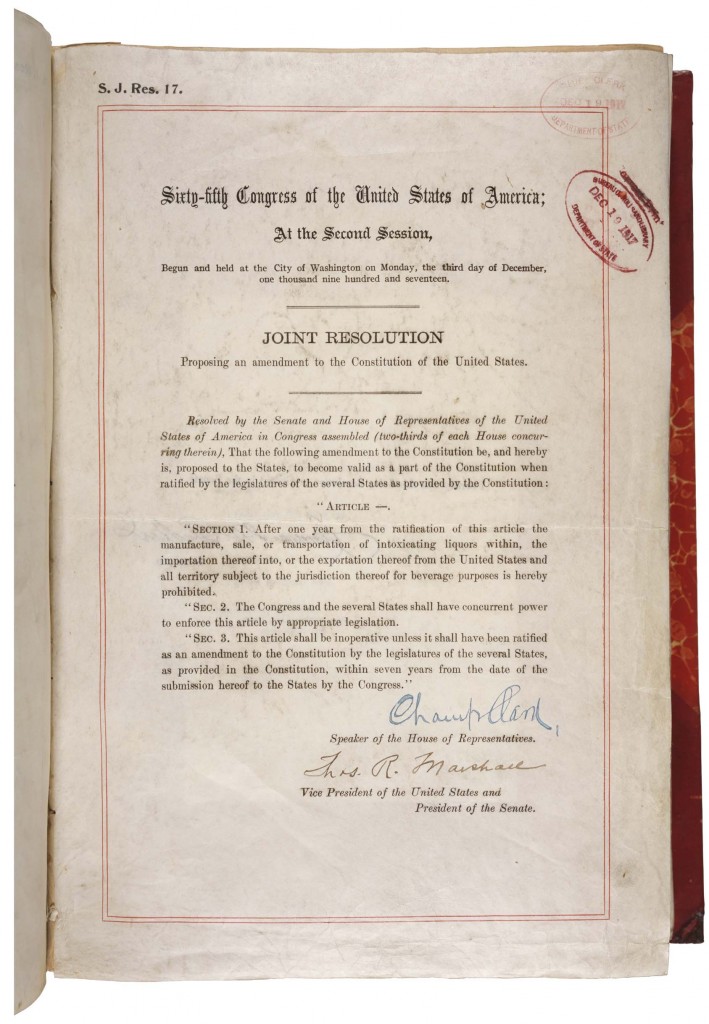 S. J. Res. 17.
DEC 19 1917
DEPARTMENT OF STATE
DEC 19 1917
DEPARTMENT OF STATE
Sixty-fifth Congress of the United States of America;
At the Second Session,
Begun and held at the City of Washington on Monday, the third day of December,
one thousand nine hundred and seventeen.
JOINT RESOLUTION
Proposing an amendment to the Constitution of the United States.
Resolved by the Senate and House of Representatives of the United
States of America in Congress assembled (two-thirds of each House concur-
ring therein), That the following amendment to the Constitution be, and hereby
is, proposed to the States, to become valid as a part of the Constitution when
ratified by the legislatures of the several States as provided by the Constitution:
"ARTICLE —.
"SECTION 1. After one year from the ratification of this article the
manufacture, sale, or transportation of intoxicating liquors within, the
importation thereof into, or the exportation thereof from the United States and
all territory subject to the jurisdiction thereof for beverage purposes is hereby
prohibited.
"SEC. 2. The Congress and the several States shall have concurrent power
to enforce this article by appropriate legislation.
"SEC. 3. This article shall be inoperative unless it shall have been ratified
as an amendment to the Constitution by the legislatures of the several States,
as provided in the Constitution, within seven years from the date of the
submission hereof to the States by the Congress."
Champ Clark,
Speaker of the House of Representatives.
Thos. R. Marshall
Vice President of the United States and
President of the Senate.